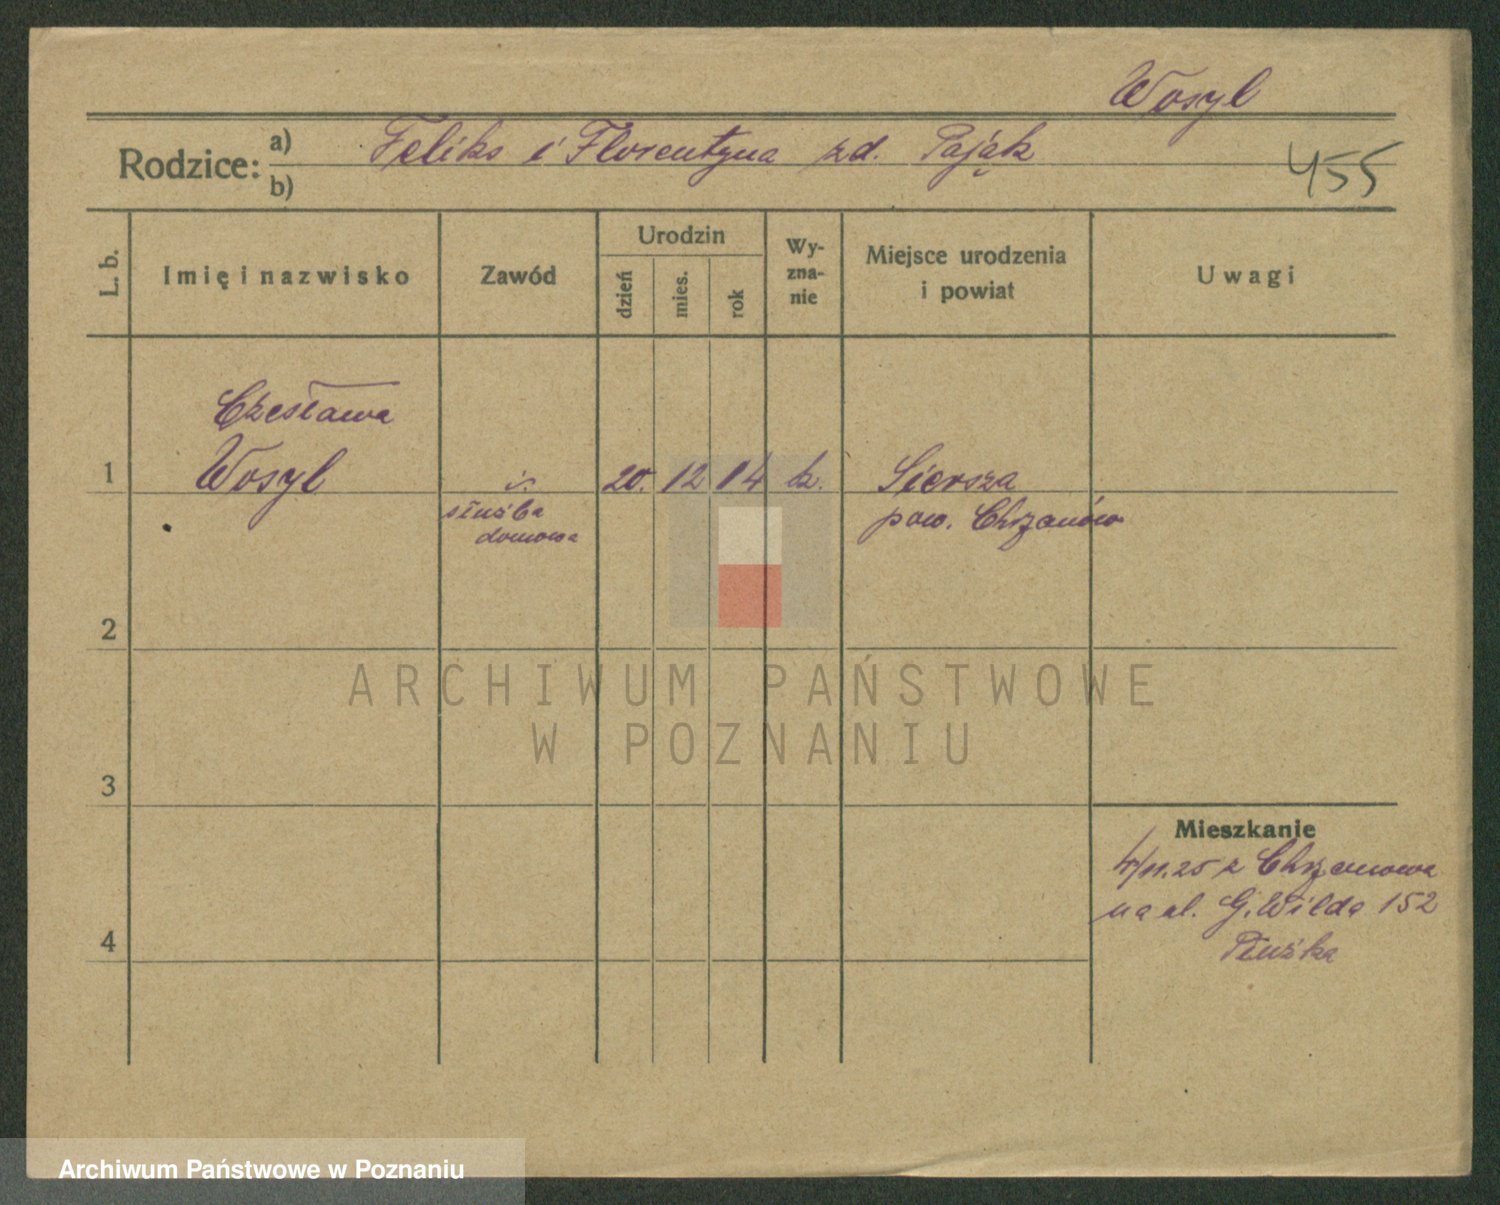 Wosyl
Rodzice: a) Feliks i Florentyna zd. Pająk
b)
455
L. b.
Imię i nazwisko
Zawód
Urodzin
dzień
mies.
rok
Wy-
zna-
nie
Miejsce urodzenia
i powiat
Uwagi
Czesława
1 Wosyl
służba
domowa
20. 12 14 k.
Siersza
pow. Chrzanów
2
3
4
Mieszkanie
z Chrzanowa
na ul. G. Wilda 152
ARCHIWUM PAŃSTWOWE
W POZNANIU
Archiwum Państwowe w Poznaniu